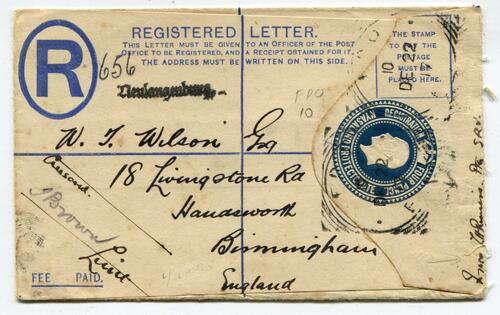 REGISTERED LETTER.
THIS LETTER MUST BE GIVEN TO AN OFFICER OF THE POST
OFFICE TO BE REGISTERED, AND A RECEIPT OBTAINED FOR IT.
THE ADDRESS MUST BE WRITTEN ON THIS SIDE.
THE STAMP
TO PAY THE
POSTAGE
MUST BE
PLACED HERE.
R
656
Neulangenburg.
FPO
10
10
DE 22
17
W. T. Wilson Esq
18 Livingstone Rd
Handsworth
Birmingham
England
NYASALAND PROTECTORATE REGISTRATION FOUR PENCE
Censored.
Brown
Lieut
FEE PAID.